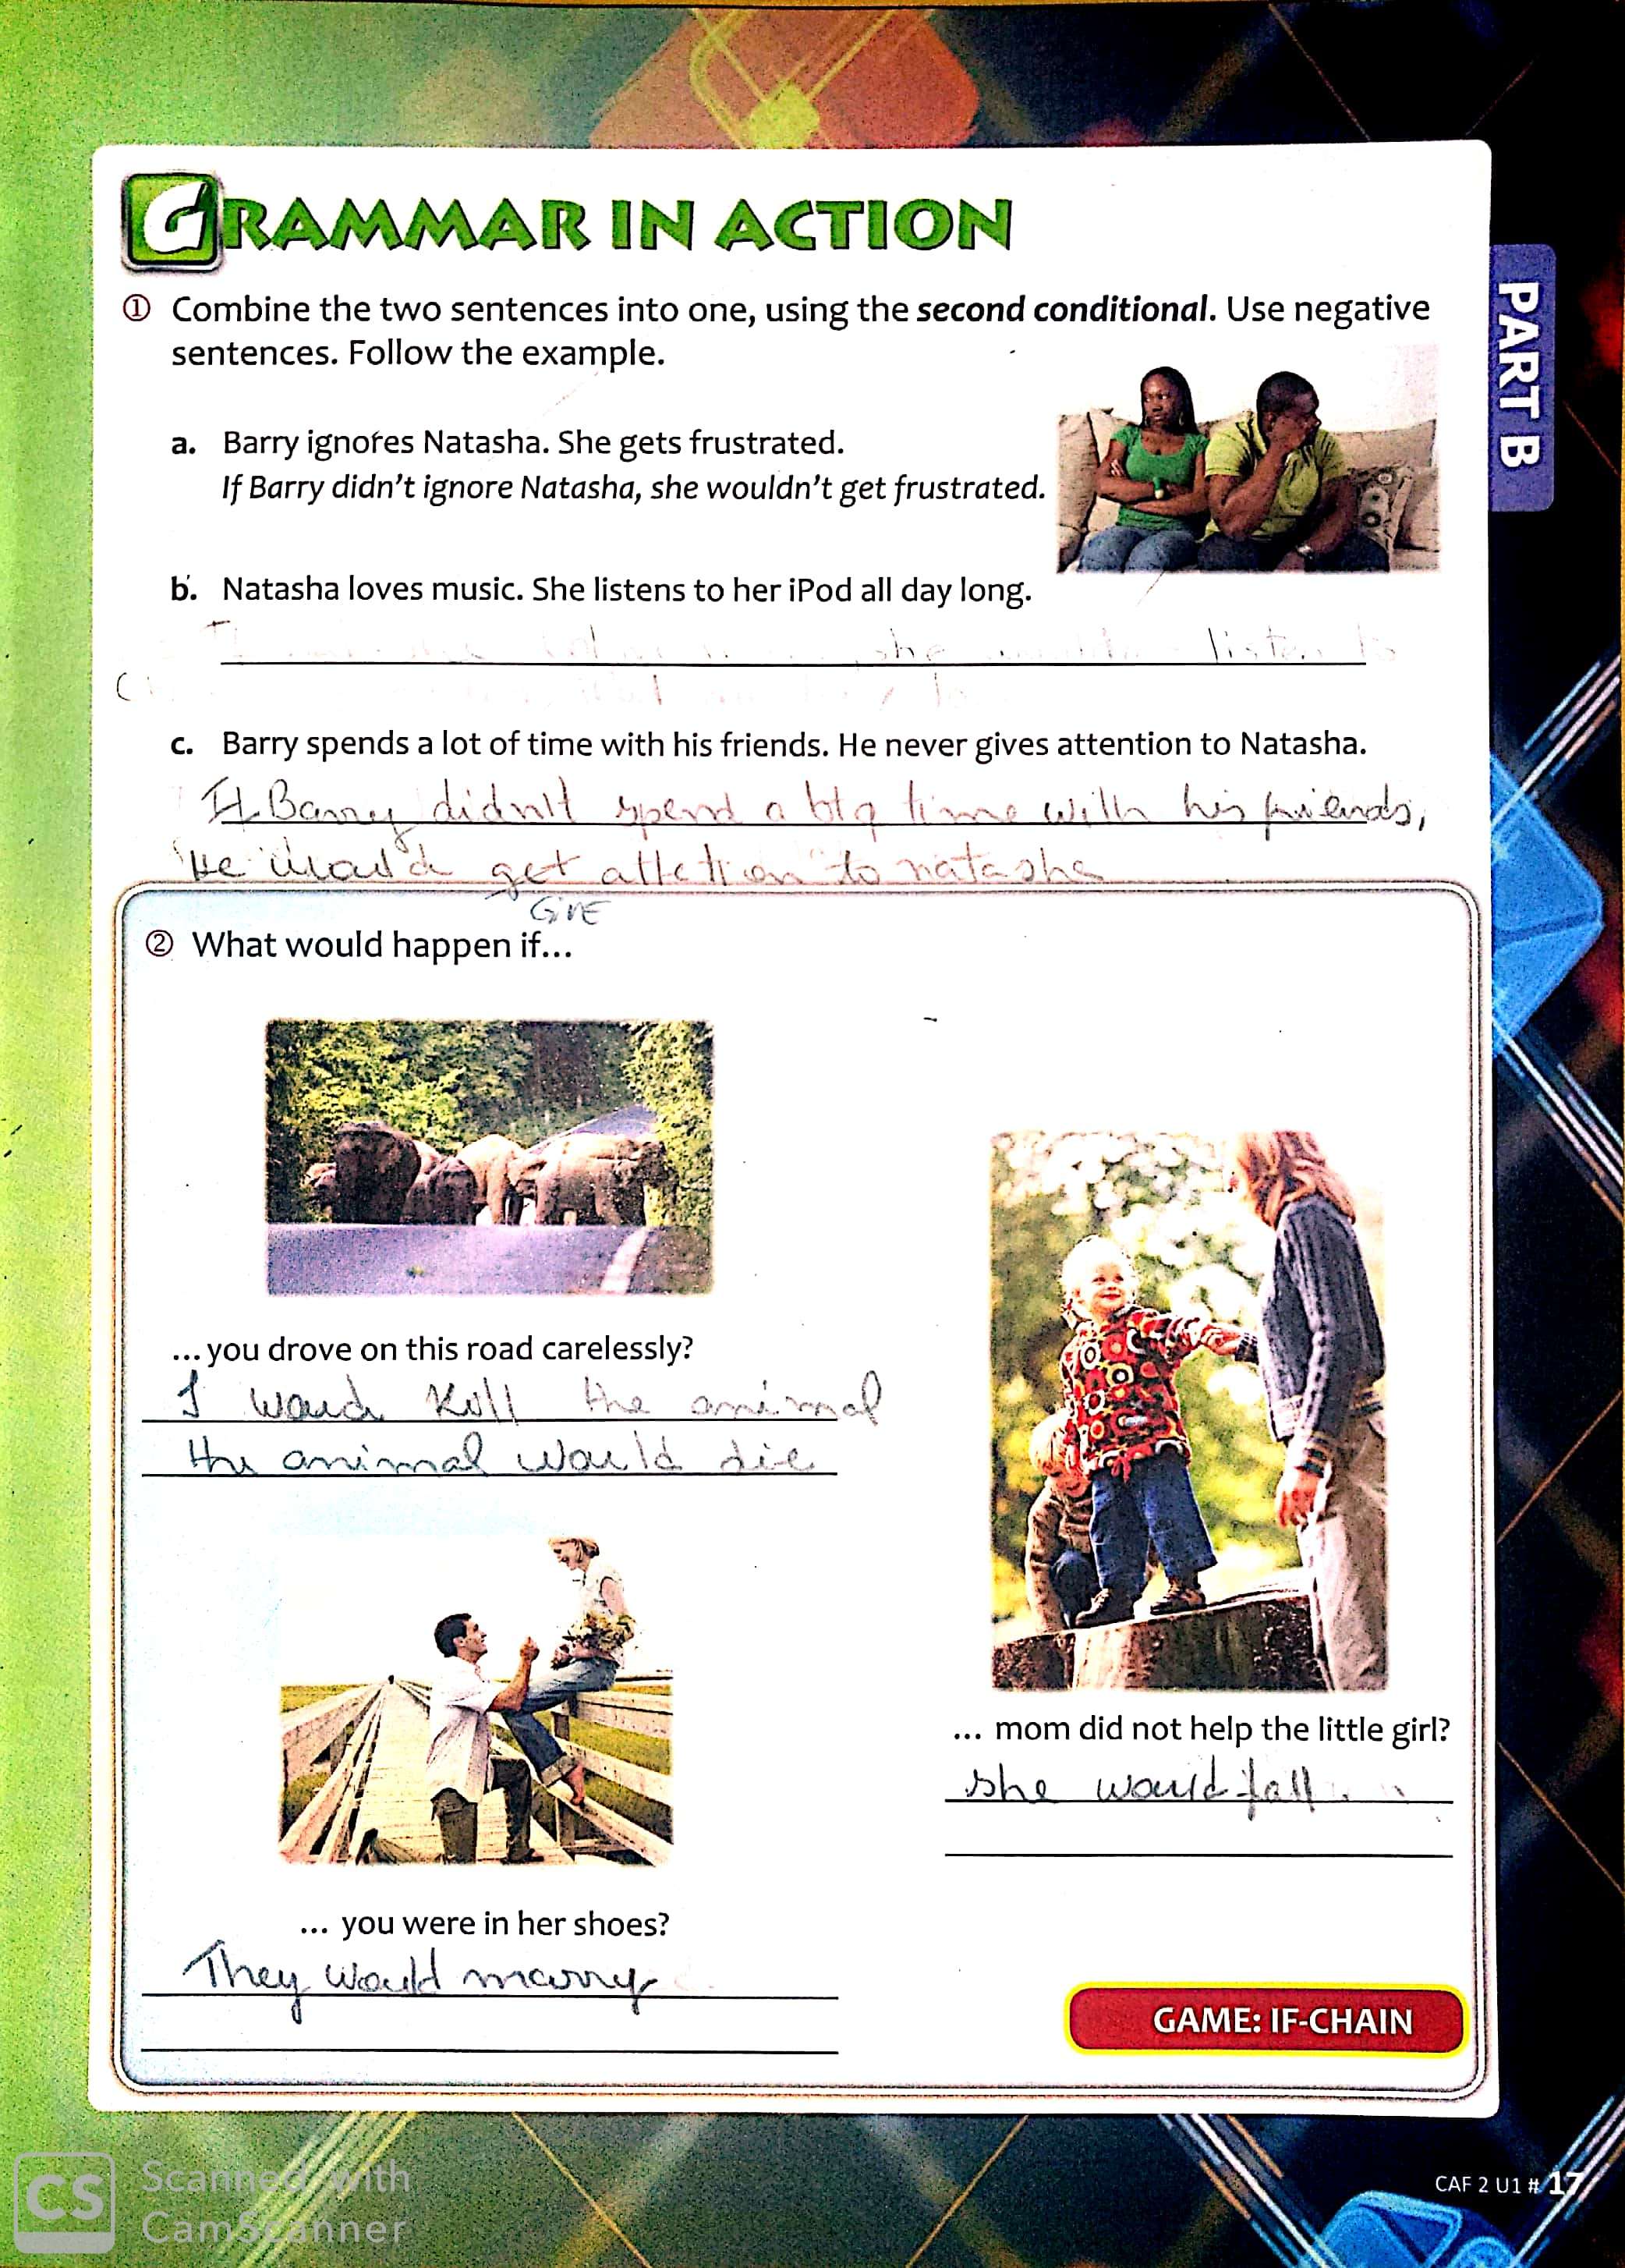 GRAMMAR IN ACTION
PART B
① Combine the two sentences into one, using the second conditional. Use negative
sentences. Follow the example.
a. Barry ignores Natasha. She gets frustrated.
If Barry didn't ignore Natasha, she wouldn't get frustrated.
b. Natasha loves music. She listens to her iPod all day long.
she listen to
c. Barry spends a lot of time with his friends. He never gives attention to Natasha.
If Barry didn't spend a big time with his friends,
He would get attetion to natasha
GIVE
② What would happen if...
...you drove on this road carelessly?
I would kill the animal
the animal would die
... mom did not help the little girl?
she would fall
... you were in her shoes?
They would marry
GAME: IF-CHAIN
CAF 2 U1 # 17
CS Scanned with
CamScanner